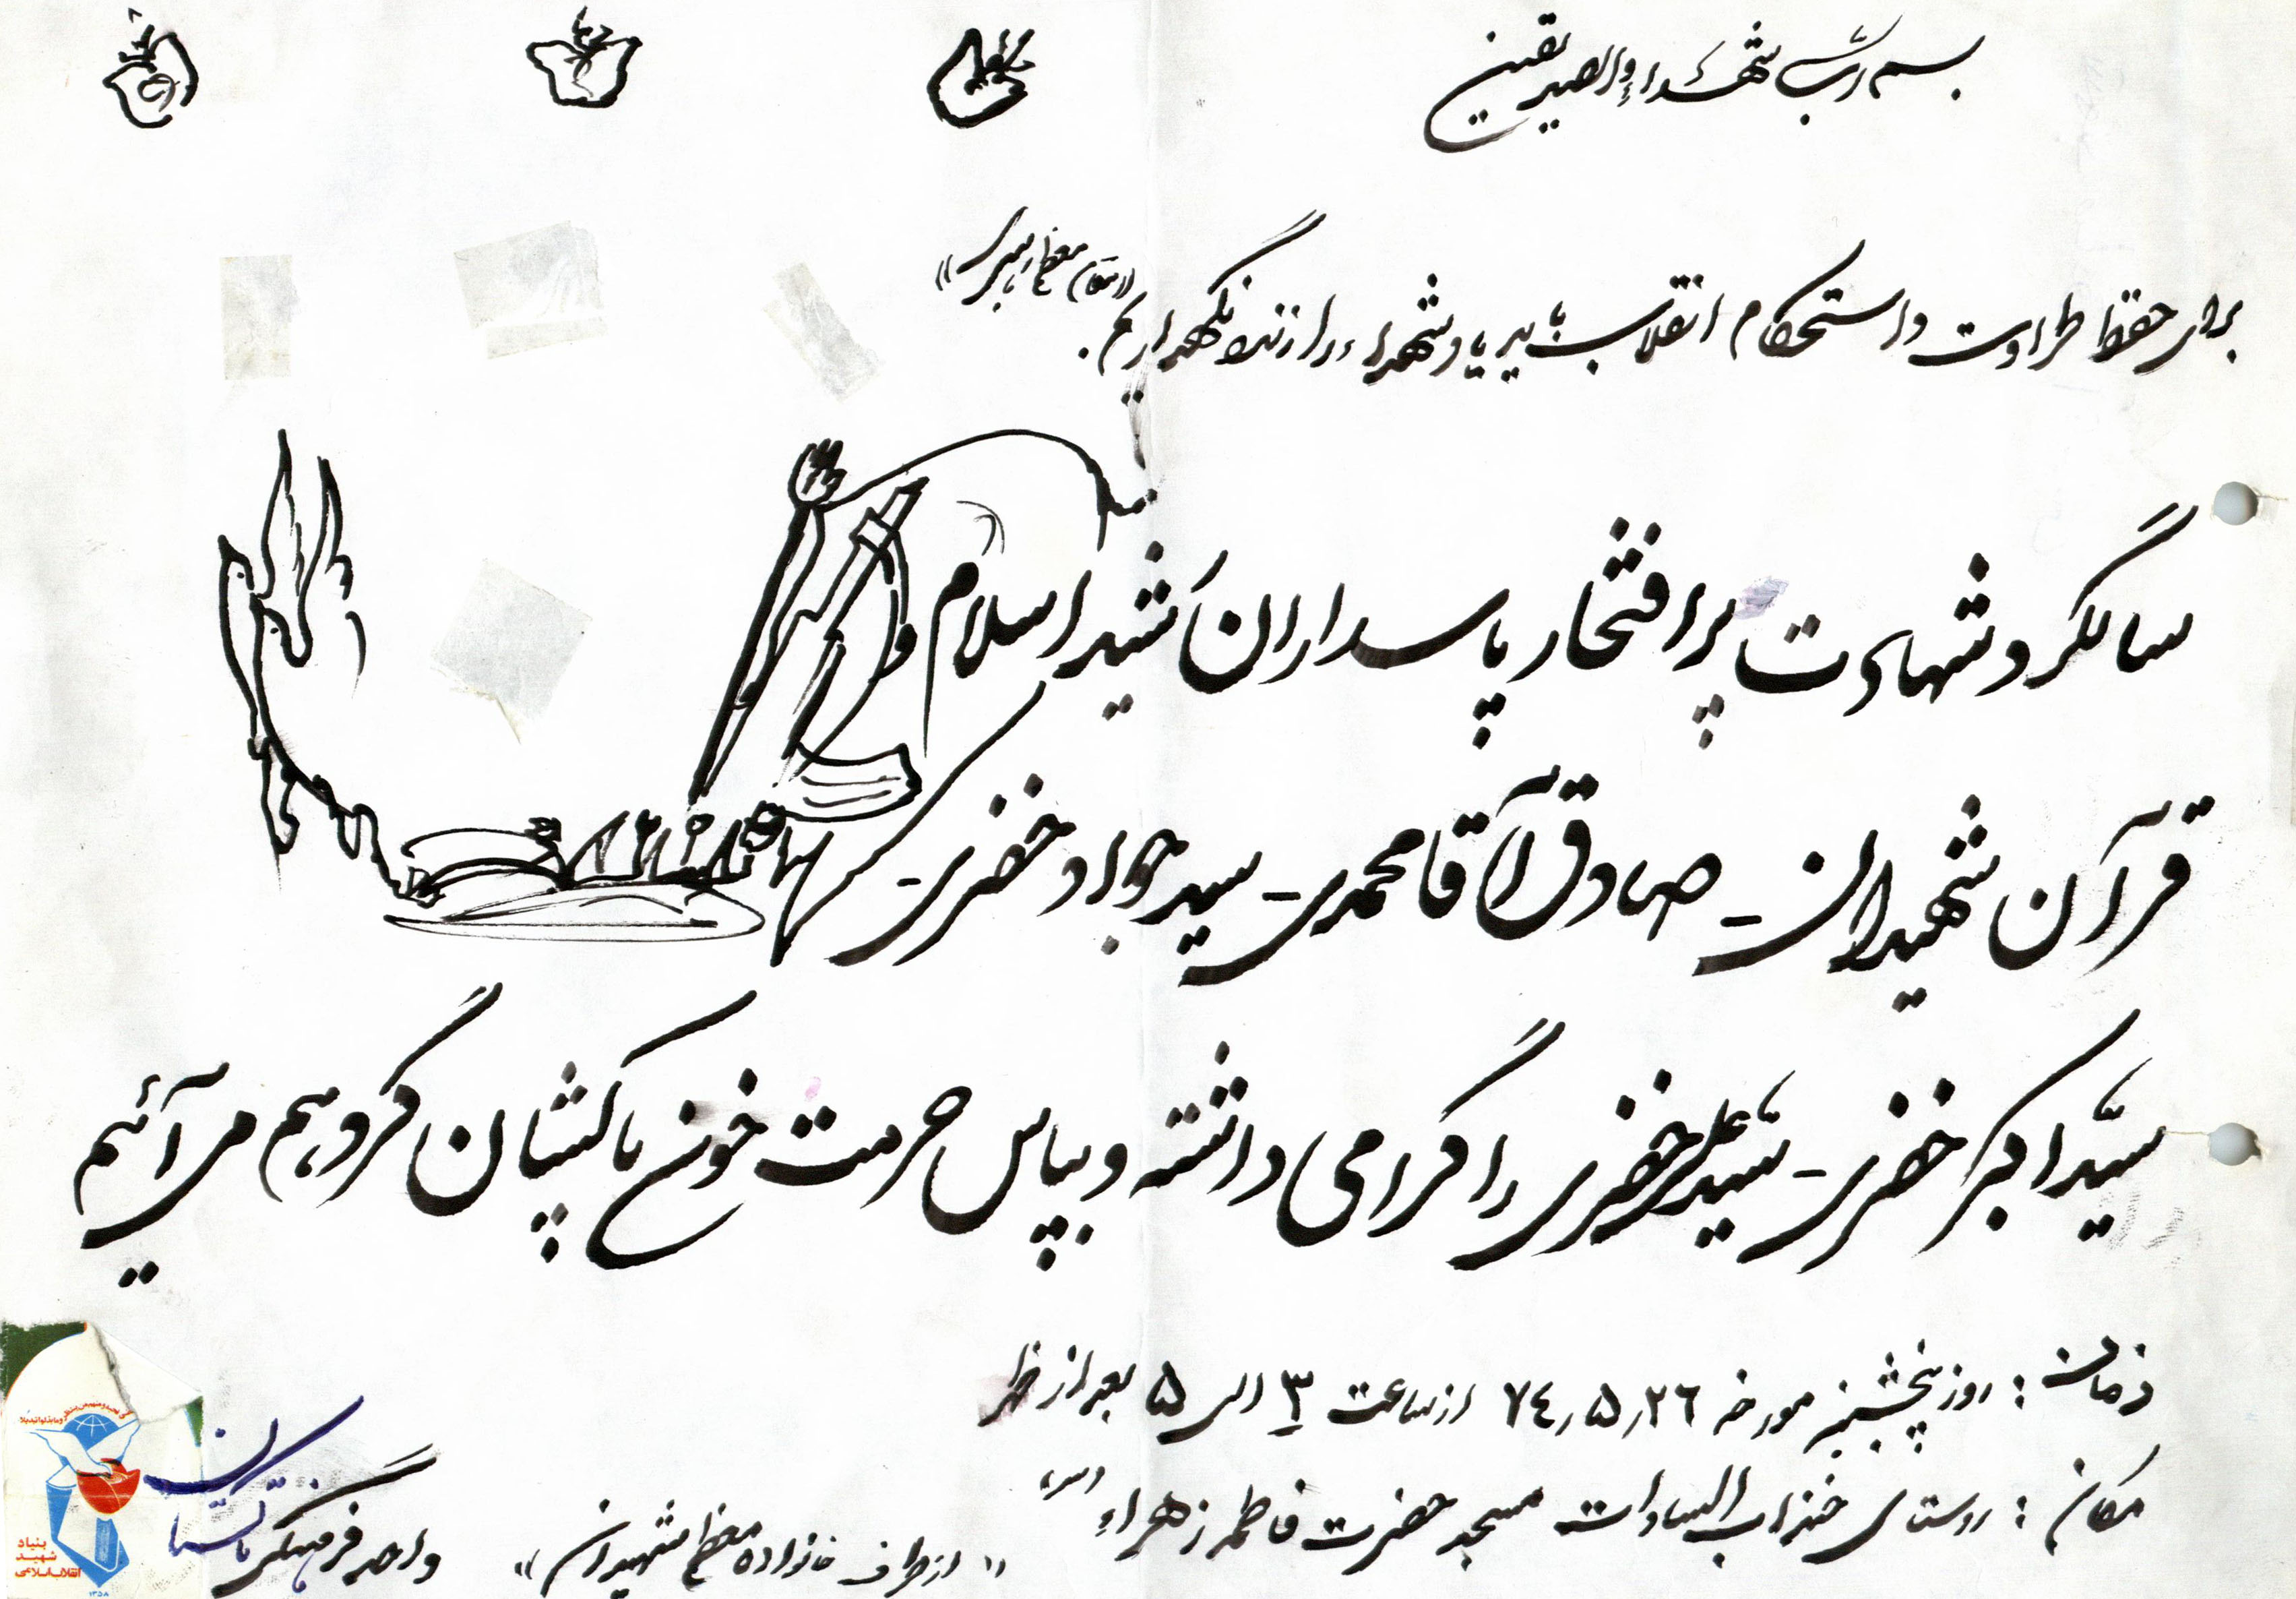 بسم رب الشهداء والصدیقین
برای حفظ طراوت و استحکام انقلاب باید یاد شهداء را زنده نگهداریم. «مقام معظم رهبری»
سالگرد شهادت پرافتخار پاسداران رشید اسلام و
قرآن شهیدان - صادق آقامحمدی - سید جواد خضری -
سیّد اکبر خضری - سیّد علی خضری را گرامی داشته و بپاس حرمت خون پاکشان گرد هم می آئیم
زمان: روز پنجشنبه مورخه ۷٤٫۵٫۲٦ از ساعت ۳ الی ۵ بعد از ظهر
مکان: روستای خنداب السادات مسجد حضرت فاطمه زهراء (س)
«از طرف خانواده معظم شهیدان»
واحد فرهنگی
تاکستان
بنیاد
شهید
انقلاب اسلامی
۱۳۵۸